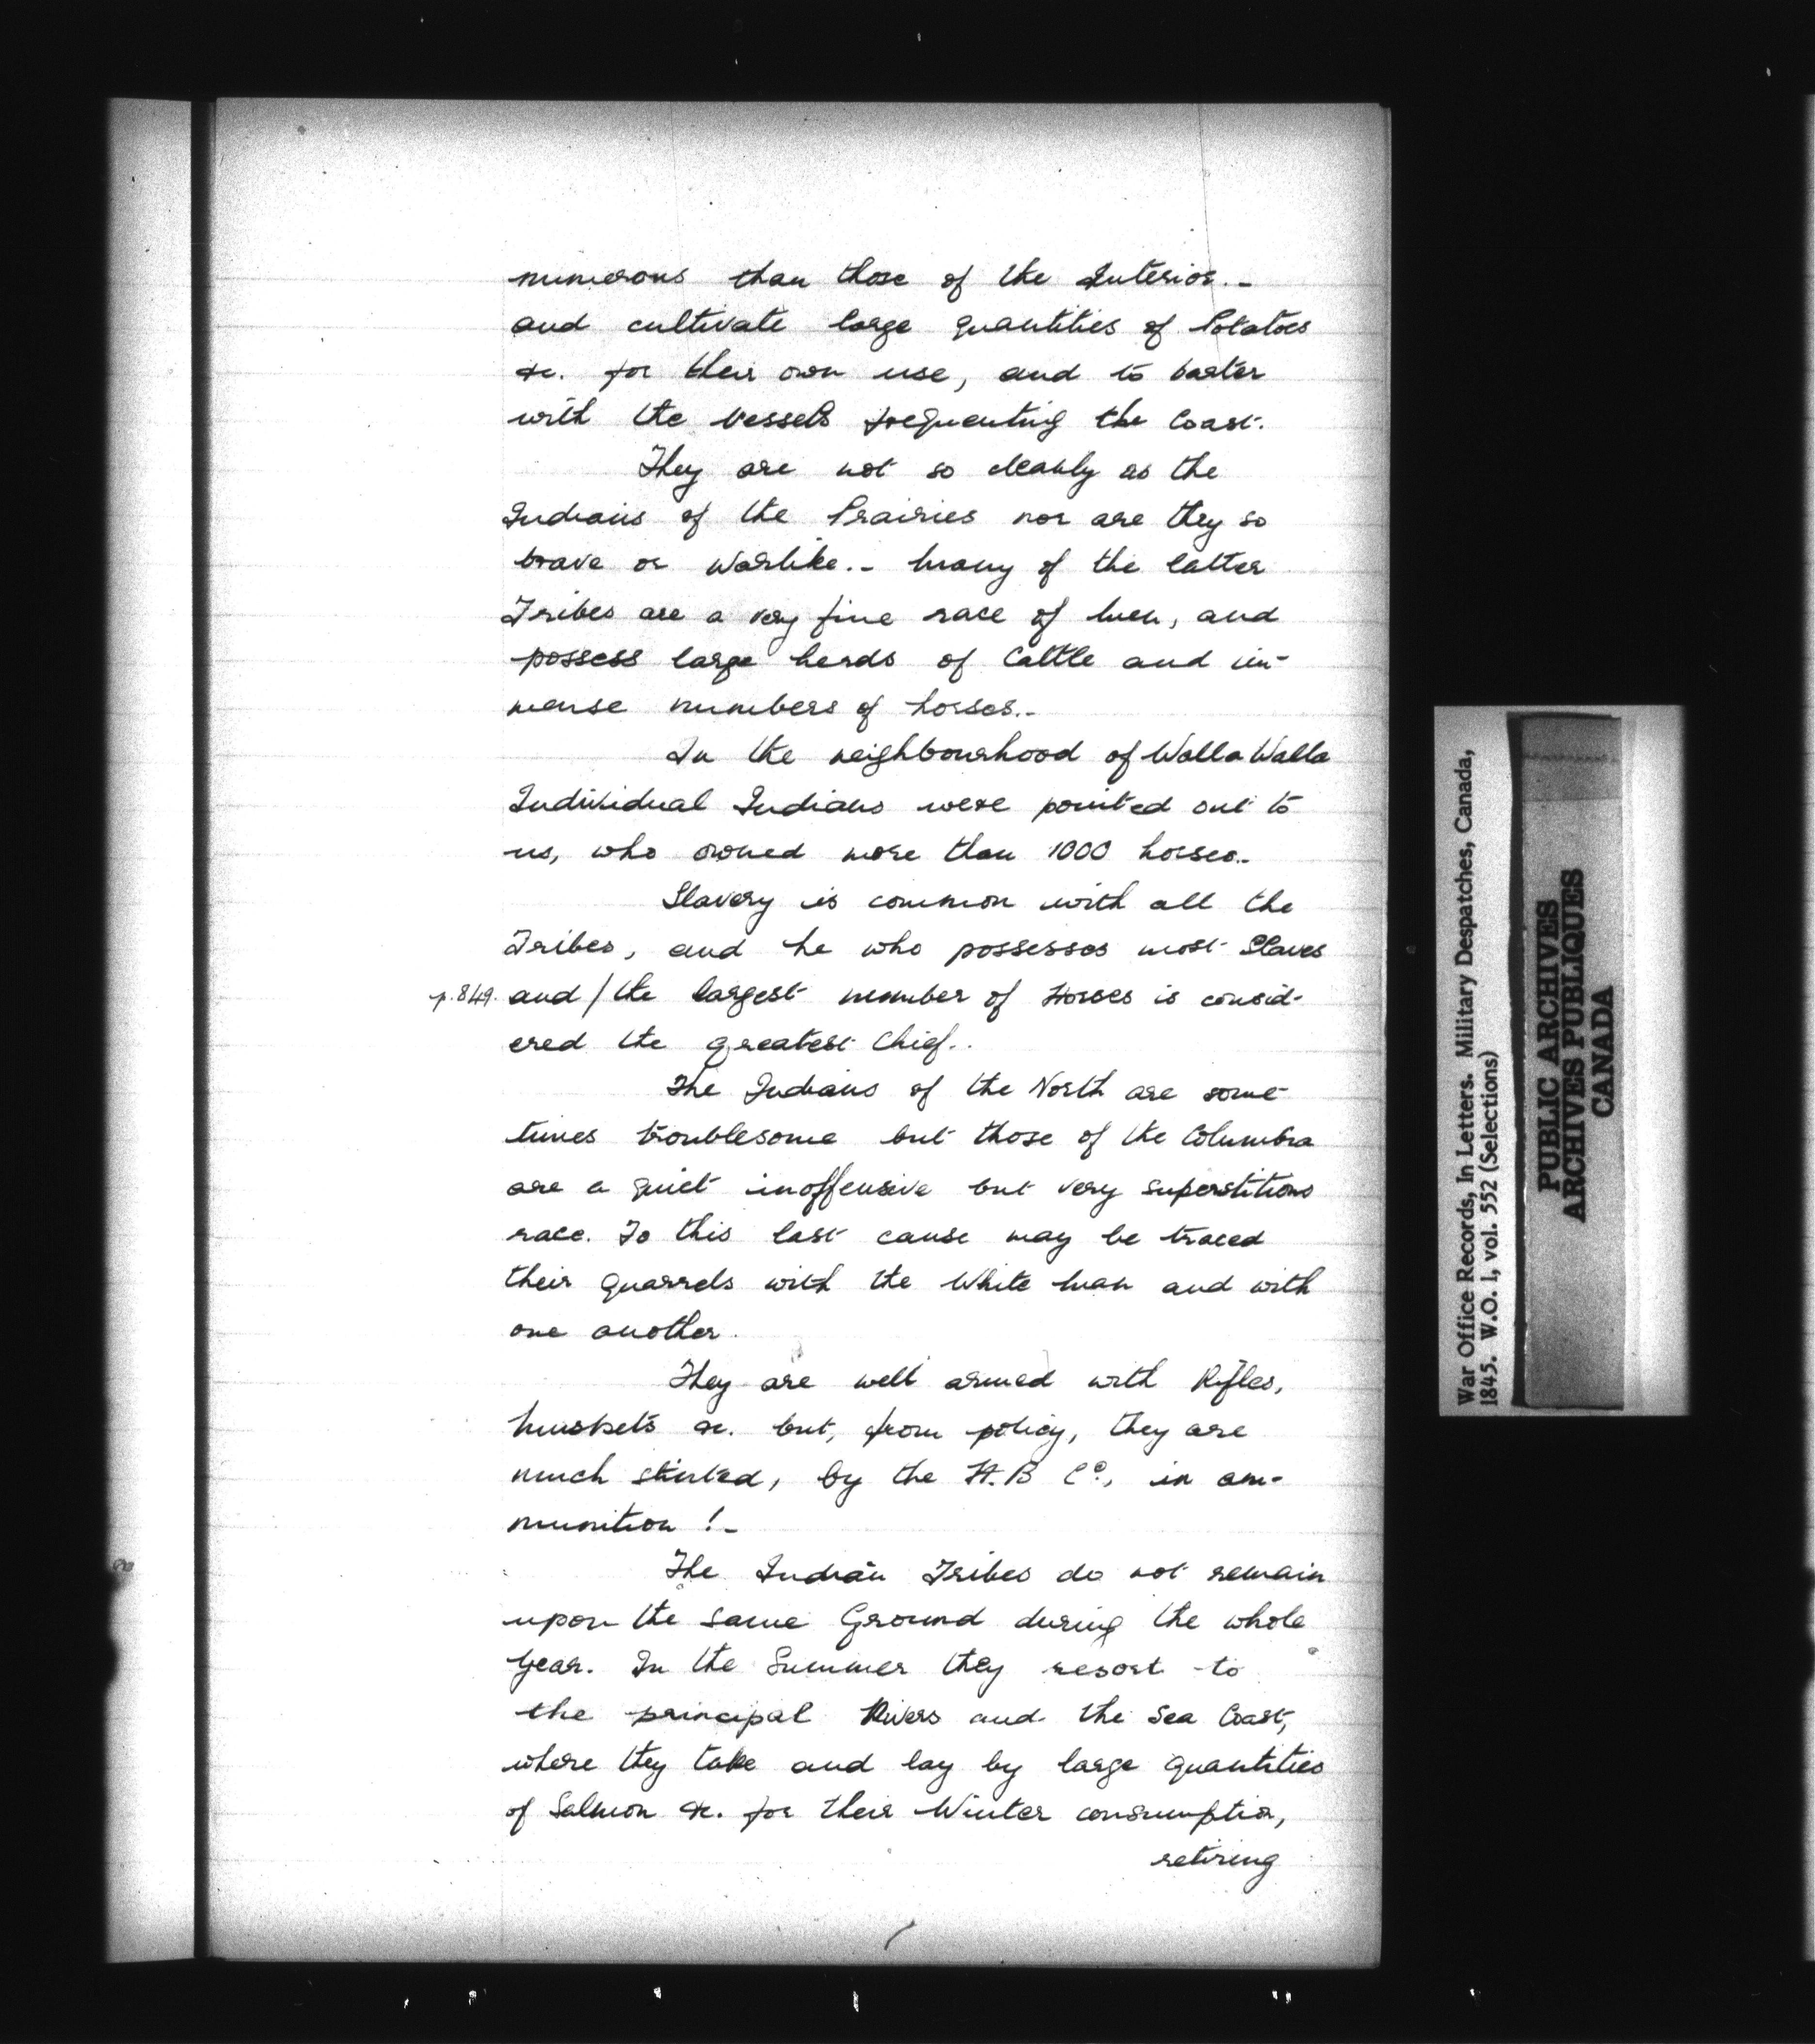 numerous than those of the Interior.-
and cultivate large quantities of Potatoes
&c. for their own use, and to barter
with the Vessels frequenting the Coast.
They are not so cleanly as the
Indians of the Prairies nor are they so
brave or warlike.- Many of the latter
Tribes are a very fine race of Men, and
possess large herds of Cattle and im-
mense numbers of horses.-
In the neighbourhood of Walla Walla
Individual Indians were pointed out to
us, who owned more than 1000 horses.-
Slavery is common with all the
Tribes, and he who possesses most Slaves
p.849. and / the largest number of Horses is consid-
ered the greatest Chief..
The Indians of the North are some-
times troublesome but those of the Columbia
are a quiet inoffensive but very superstitious
race. To this last cause may be traced
their quarrels with the White Man and with
one another.
They are well armed with Rifles,
Muskets &c. but, from policy, they are
much stinted, by the H.B Co., in am-
munition !-
The Indian Tribes do not remain
upon the same Ground during the whole
Year. In the Summer they resort to
the principal Rivers and the Sea Coast,
where they take and lay by large quantities
of Salmon &c. for their Winter consumption,
retiring
War Office Records, In Letters. Military Despatches, Canada,
1845. W.O. 1, vol. 552 (Selections)
PUBLIC ARCHIVES
ARCHIVES PUBLIQUES
CANADA